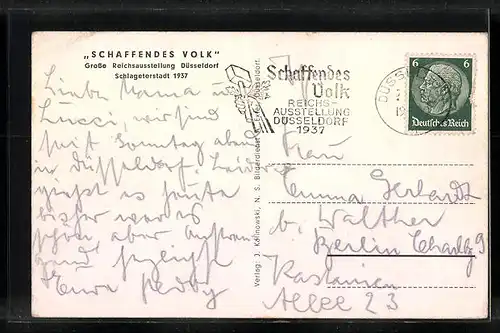 „SCHAFFENDES VOLK"
Große Reichsausstellung Düsseldorf
Schlageterstadt 1937
Liebe Mama u.
wir sind
seit Sonntag abend
in Düsseldorf. Leider
gießt es heute
bisher war es
schön aber
Eure Peddy
Verlag: J. Kalinowski, N. S. Bilderdienst
Schaffendes
Volk
REICHS-
AUSSTELLUNG
DÜSSELDORF
1937
6 6
Deutsches Reich
Frau
Emma Gerhardt
b. Walther
Berlin Charlbg 9
Kastanien
Allee 23